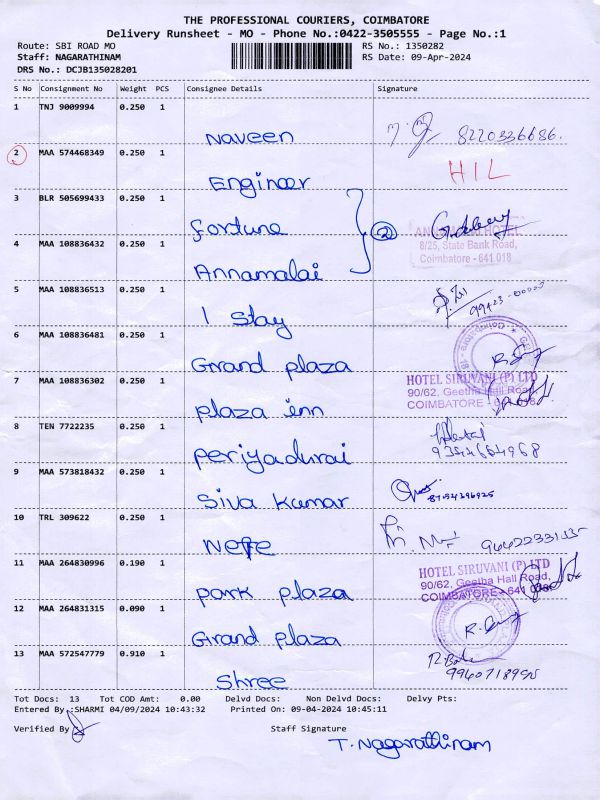 THE PROFESSIONAL COURIERS, COIMBATORE
Delivery Runsheet - MO - Phone No.:0422-3505555 - Page No.:1
Route: SBI ROAD MO RS No.: 1350282
Staff: NAGARATHINAM RS Date: 09-Apr-2024
DRS No.: DCJB135028201
S No Consignment No Weight PCS Consignee Details Signature
1 TNJ 9009994 0.250 1
Naveen 8220336686.
2 MAA 574468349 0.250 1
Engineer HIL
3 BLR 505699433 0.250 1
fortune
8/25, State Bank Road,
4 MAA 108836432 0.250 1 Coimbatore - 641 018
Annamalai 2
5 MAA 108836513 0.250 1
I Stay
6 MAA 108836481 0.250 1
Grand plaza
7 MAA 108836302 0.250 1 HOTEL SIRUVANI (P) LTD
90/62, Geetha Hall Road,
COIMBATORE -
plaza inn
8 TEN 7722235 0.250 1
periyadurai
9 MAA 573818432 0.250 1
Siva Kumar
10 TRL 309622 0.250 1
11 MAA 264830996 0.190 1 HOTEL SIRUVANI (P) LTD
90/62, Geetha Hall Road,
COIMBATORE - 641
park plaza
12 MAA 264831315 0.090 1
Grand plaza
13 MAA 572547779 0.910 1
Shree
Tot Docs: 13 Tot COD Amt: 0.00 Delvd Docs: Non Delvd Docs: Delvy Pts:
Entered By :SHARMI 04/09/2024 10:43:32 Printed On: 09-04-2024 10:45:11
Verified By Staff Signature
T. Nagarathinam